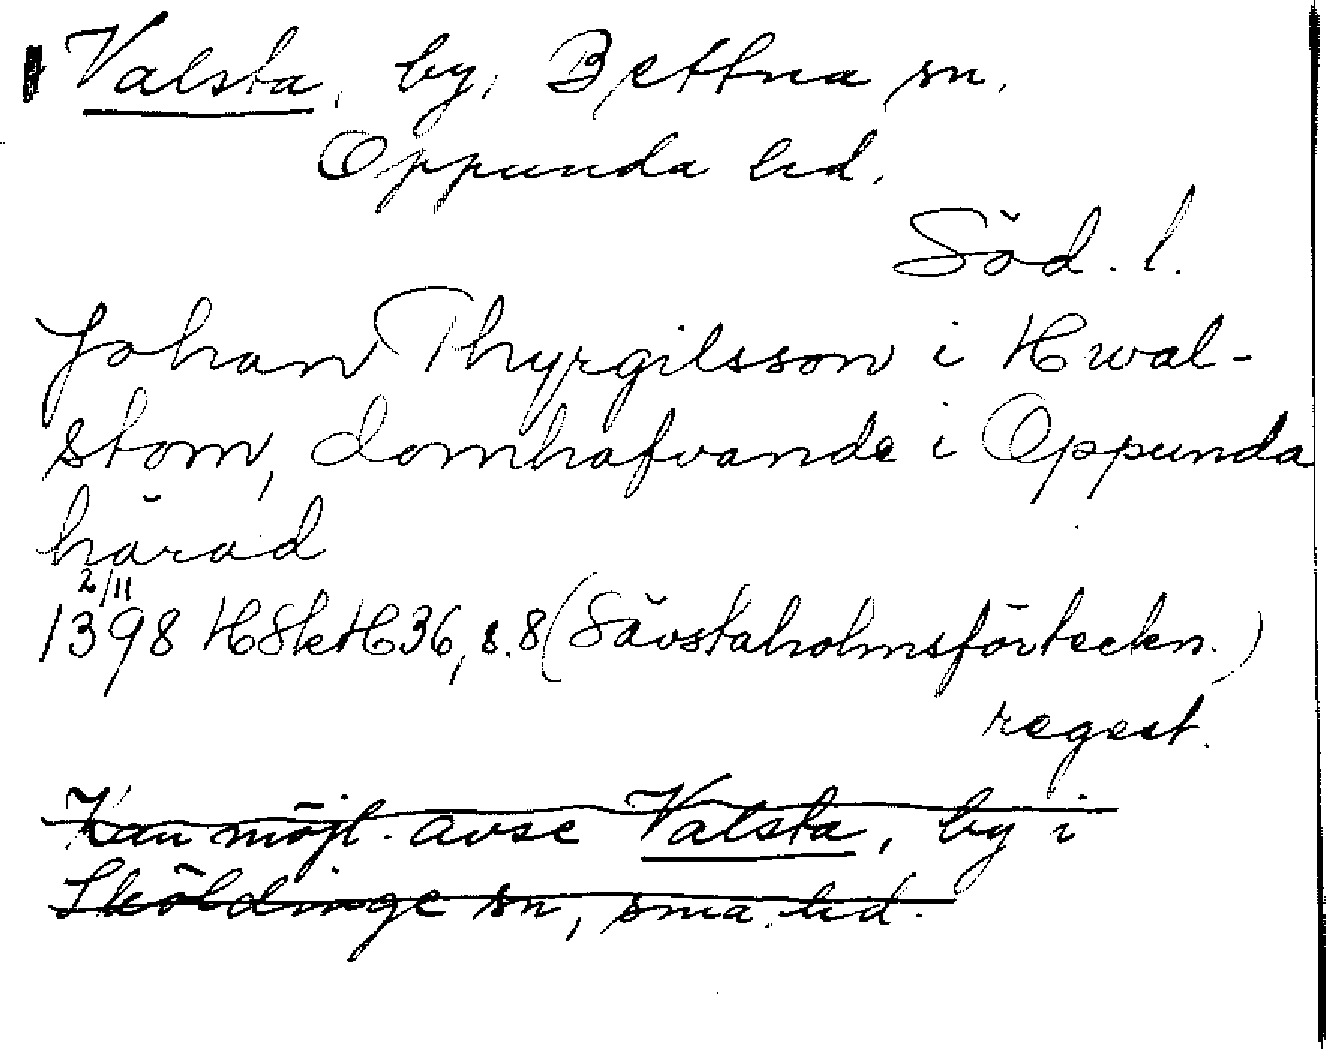 Valsta, by, Bettna sn.
Oppunda hd.
Söd. l.
Johan Thyrgilsson i Hwal-
stom, domhafvande i Oppunda
härad
2/11
1398 HSkH 36, s. 8 (Sävstaholmsförteckn.)
regest.
Kan möjl. avse Valsta, by i
Sköldinge sn, sma. hd.